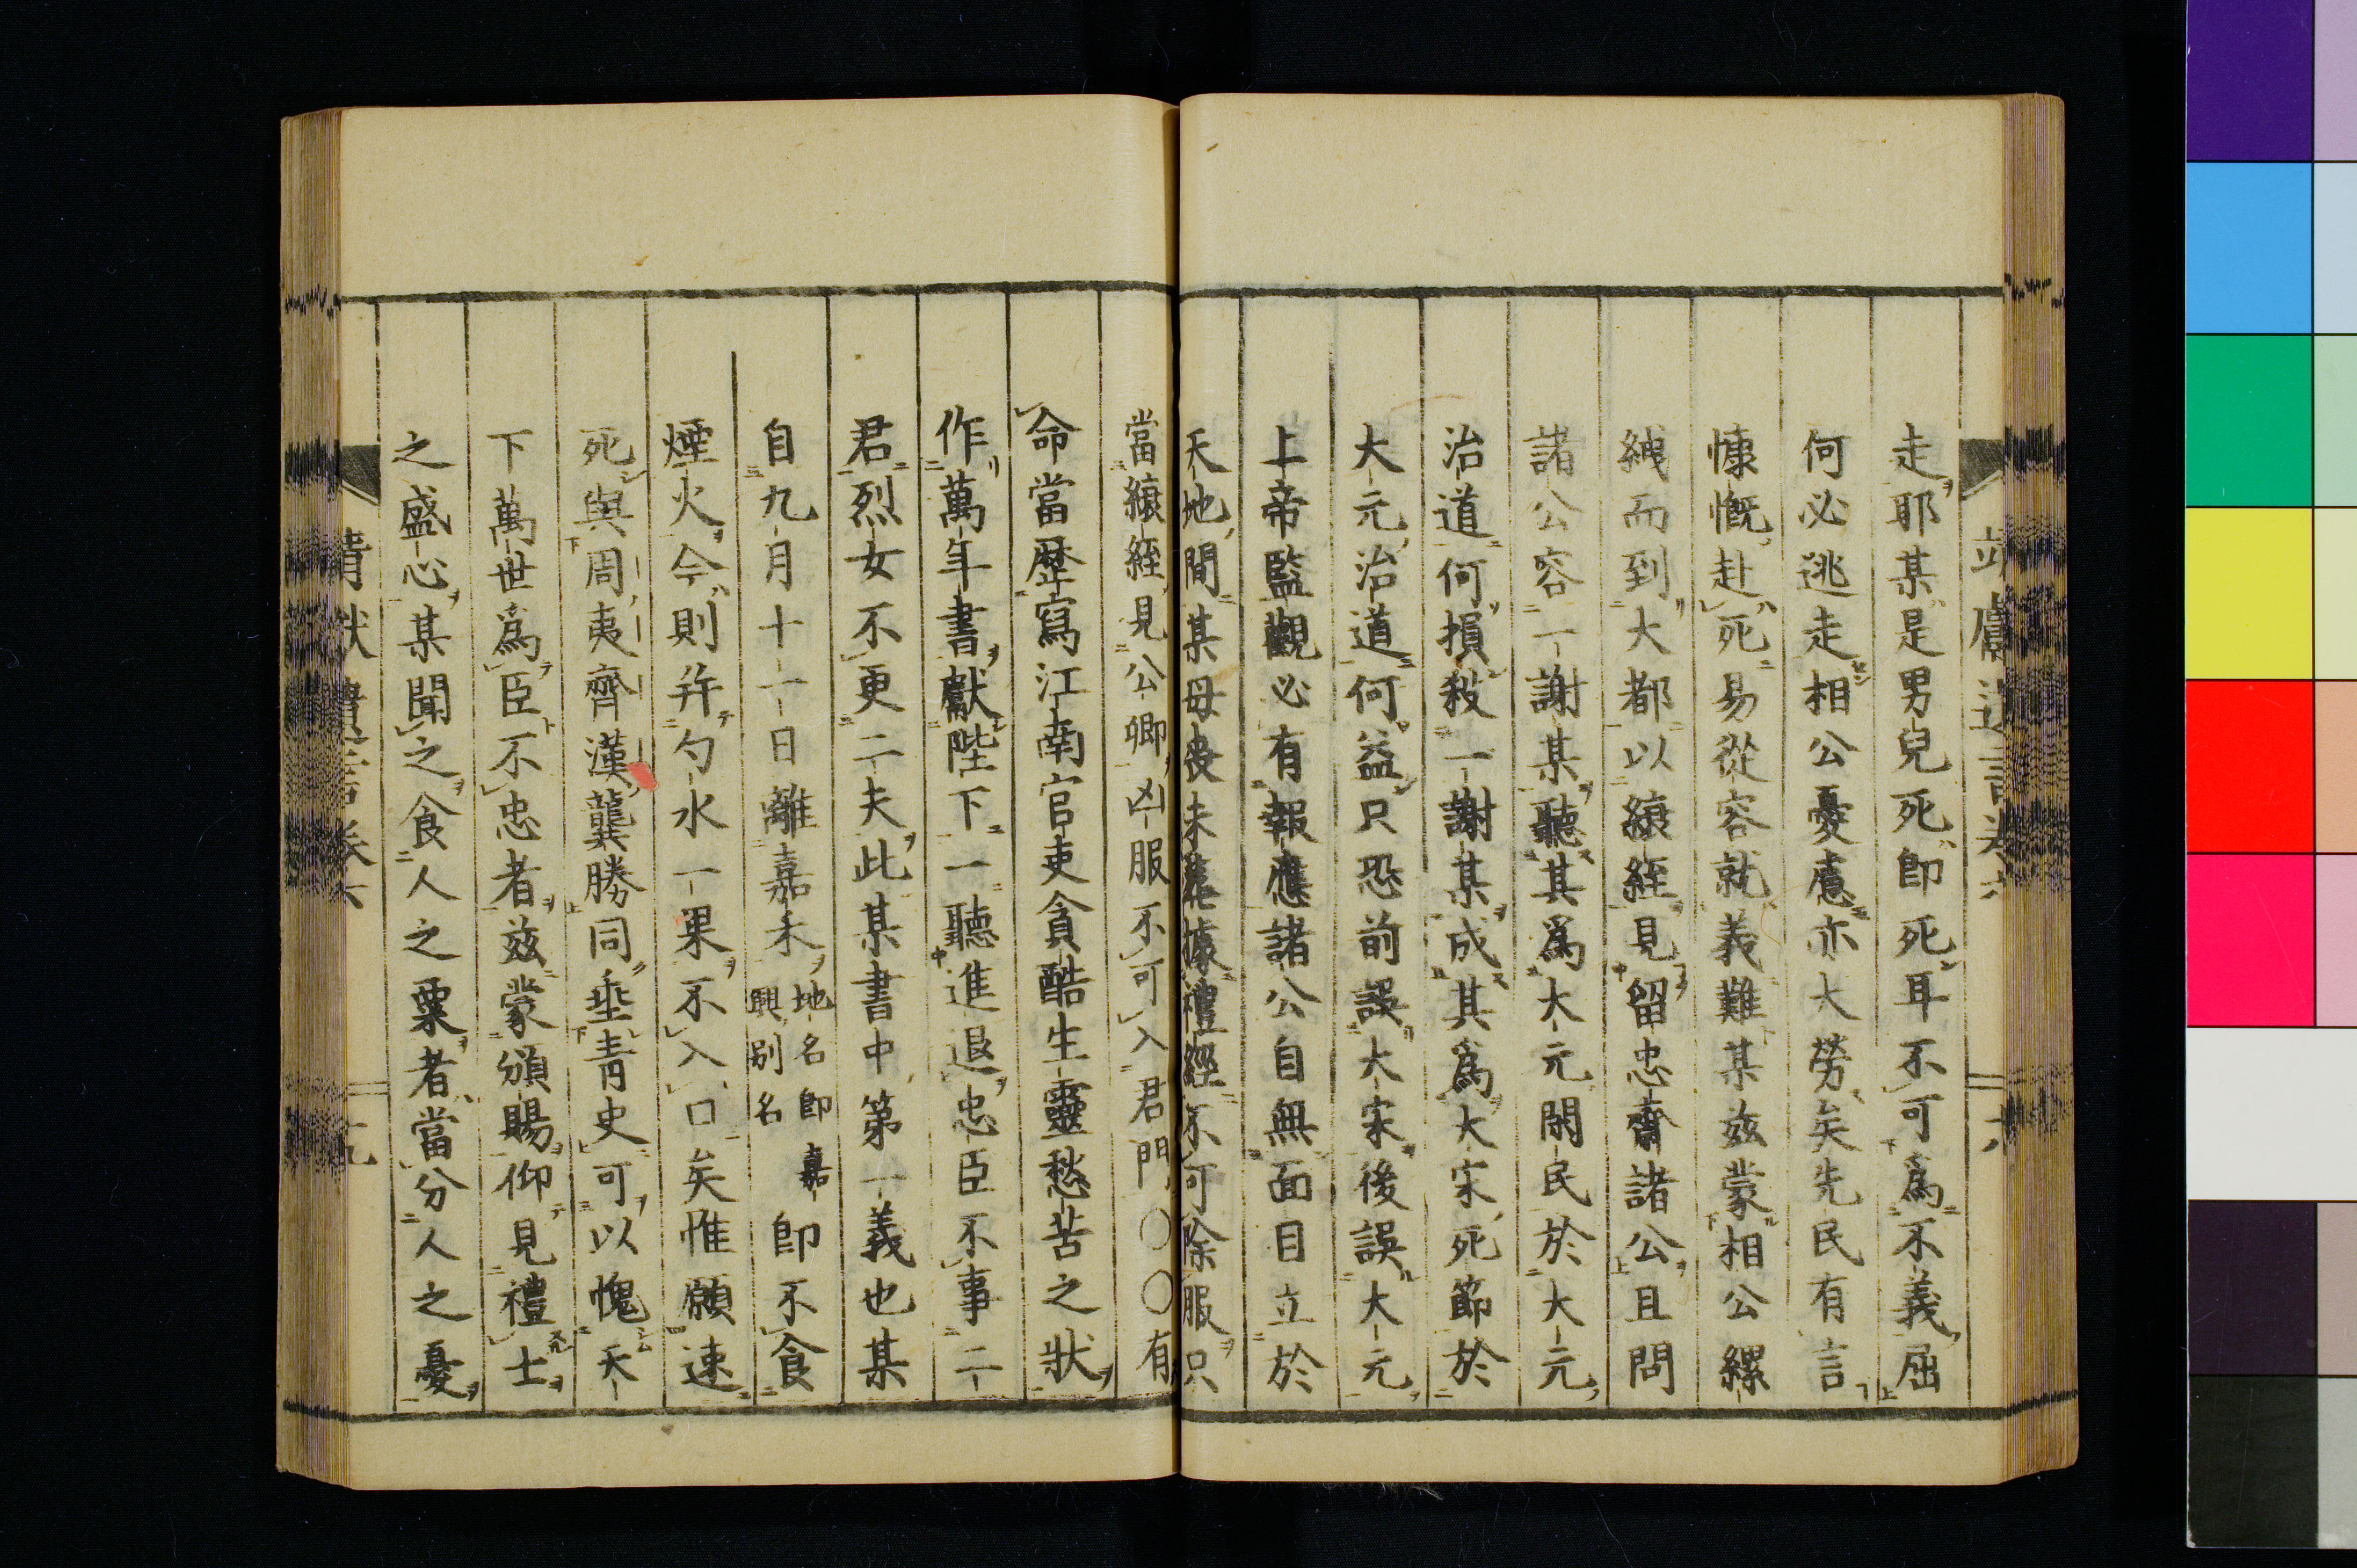 走耶某是男兒死即死耳不可爲不義屈
何必逃走相公憂慮亦大勞矣先民有言
慷慨赴死易從容就義難某茲蒙相公縲
絏而到大都以縗絰見留忠齋諸公且問
諸公容一謝某聽其爲大元閑民於大元
治道何損殺一謝某成其爲大宋死節於
大元治道何益只恐前誤大宋後誤大元
上帝監觀必有報應諸公自無面目立於
天地間某母喪未葬據禮經不可除服只
當縗絰見公卿凶服不可入君門○○有
命當歷寫江南官吏貪酷生靈愁苦之狀
作萬年書獻陛下一聽進退忠臣不事二
君烈女不更二夫此某書中第一義也某
自九月十一日離嘉禾地名即嘉興別名即不食
煙火今則幷勺水一果不入口矣惟願速
死與周夷齊漢龔勝同垂青史可以愧天
下萬世爲臣不忠者茲蒙頒賜仰見禮士
之盛心某聞之食人之粟者當分人之憂